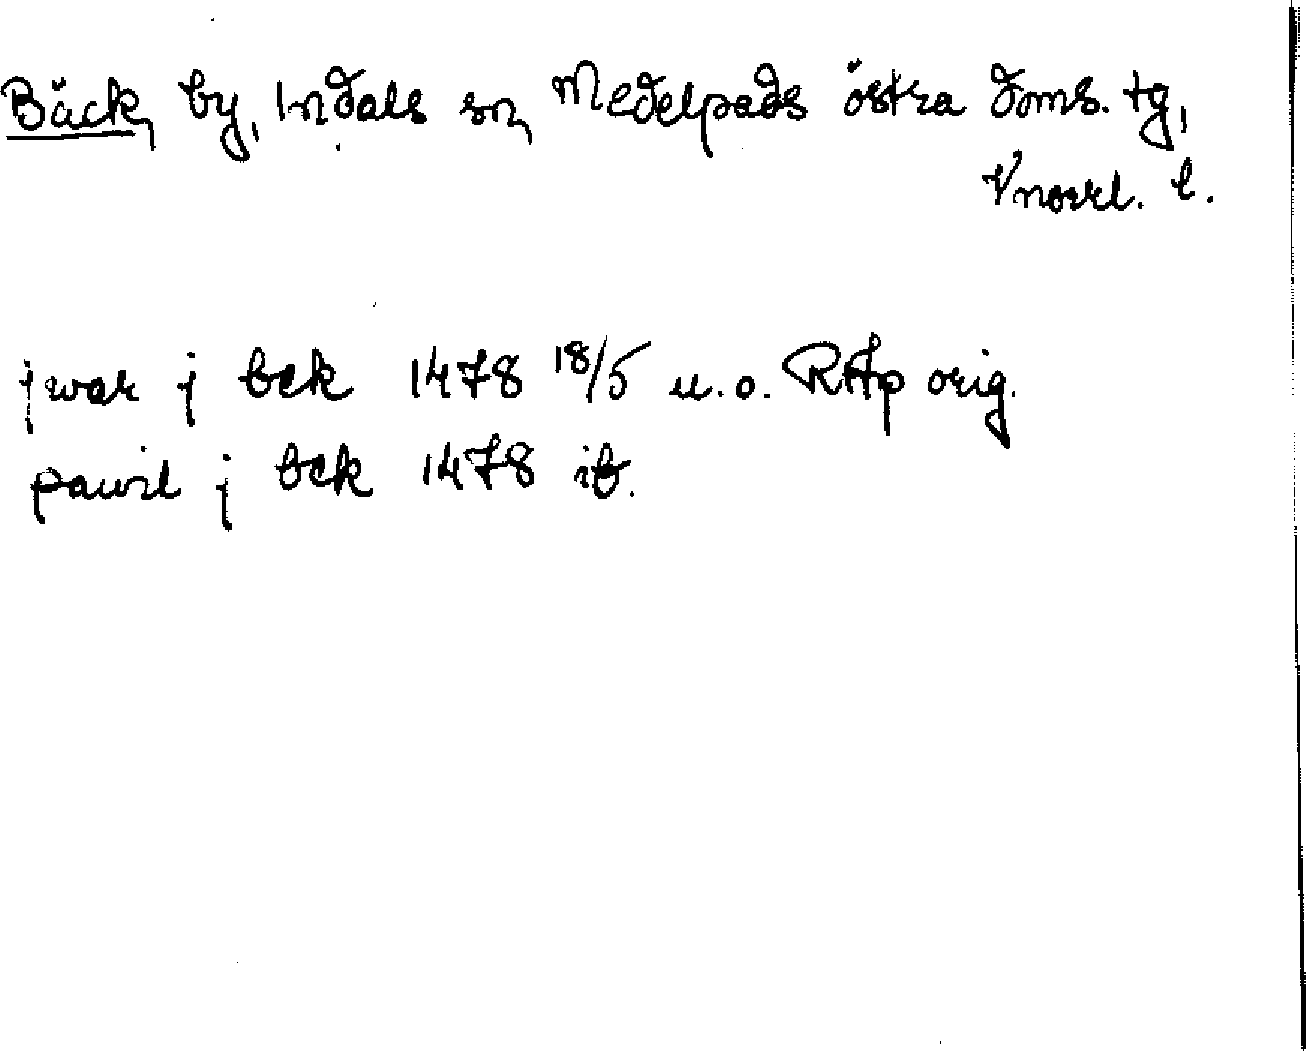 Bäck, by, Indals sn, Medelpads östra doms. tg,
Vnorrl. l.
jwar j bek 1478 18/5 u.o. RAp orig.
pawel j bek 1478 ib.